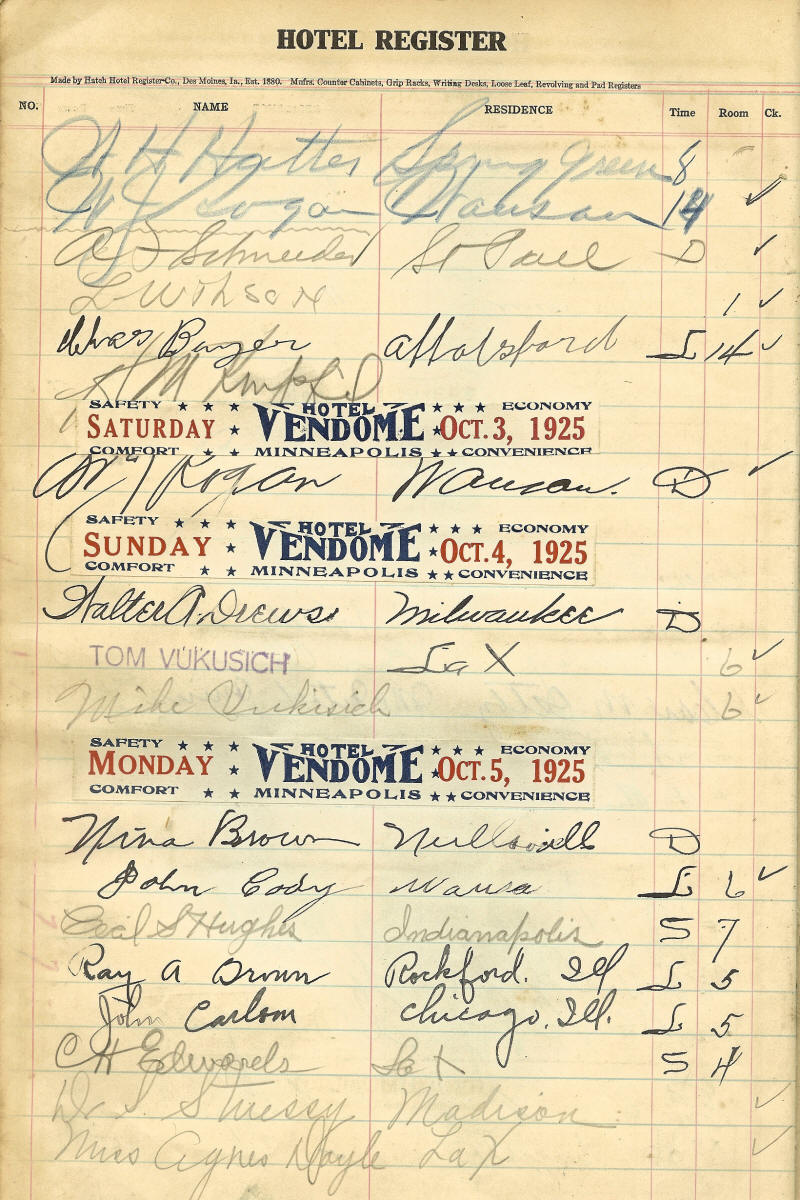 HOTEL REGISTER
Made by Hatch Hotel Register Co., Des Moines, Ia., Est. 1880. Mnfrs. Counter Cabinets, Grip Racks, Writing Desks, Loose Leaf, Revolving and Pad Registers
NO. NAME RESIDENCE Time Room Ck.
H Hatter Spring Green 8
W J Kogan Wausau 14 ✓
A J Schneider St Paul D ✓
L Wilson 1 ✓
Chas Abbotsford L 14 ✓
H M
SAFETY ★ ★ ★ HOTEL ★ ★ ★ ECONOMY
SATURDAY ★ VENDOME ★ OCT. 3, 1925
COMFORT ★ ★ MINNEAPOLIS ★ ★ CONVENIENCE
W J Kogan Wausau. D ✓
SAFETY ★ ★ ★ HOTEL ★ ★ ★ ECONOMY
SUNDAY ★ VENDOME ★ OCT. 4, 1925
COMFORT ★ ★ MINNEAPOLIS ★ ★ CONVENIENCE
Walter A. Drews Milwaukee D
TOM VUKUSICH La X 6 ✓
Mike Vukisich 6 ✓
SAFETY ★ ★ ★ HOTEL ★ ★ ★ ECONOMY
MONDAY ★ VENDOME ★ OCT. 5, 1925
COMFORT ★ ★ MINNEAPOLIS ★ ★ CONVENIENCE
Nina Brown Neillsville D
John Cody Wausa L 6 ✓
Cecil S Hughes Indianapolis S 7
Ray A Brown Rockford. Ill L 5
John Carlson Chicago, Ill. L 5
C H Edwards La X S 4
Dr S. Madison ✓
Miss Agnes Doyle La X ✓